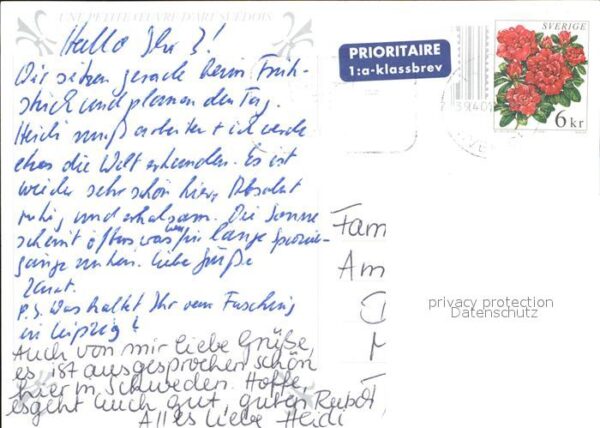 UNE PETITE ŒUVRE D'ART SUÉDOIS
Hallo Ihr 3!
Wir sitzen gerade beim Früh-
stück und planen den Tag.
Heidi muß arbeiten + ich werde
etwas die Welt erkunden. Es ist
wieder sehr schön hier, Absolut
ruhig und erholsam. Die Sonne
scheint öfters was für lange Spazier-
gänge
liebe Grüße
P.S. Was haltet Ihr vom Fasching
in Leipzig?
Auch von mir liebe Grüße,
es ist ausgesprochen schön
hier in Schweden. Hoffe,
es geht Euch gut, guten
Alles liebe Heidi
PRIORITAIRE
1:a-klassbrev
SVERIGE
6 kr
Fam
Am
privacy protection
Datenschutz